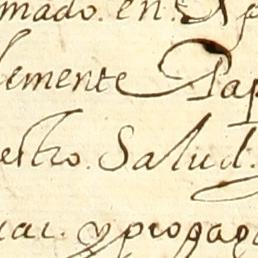 mado. en. Ap
lemente Pap
estro. Salud.
uar. y propaga